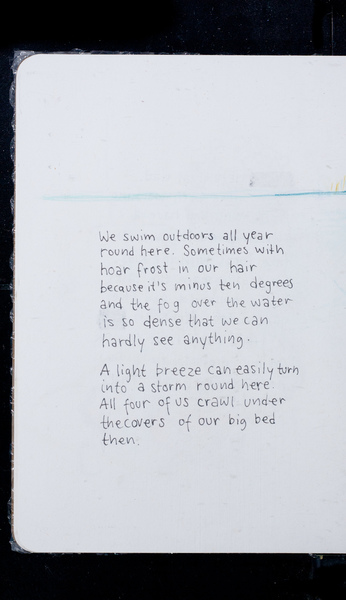 We swim outdoors all year
round here. Sometimes with
hoar frost in our hair
because it's minus ten degrees
and the fog over the water
is so dense that we can
hardly see anything.
A light breeze can easily turn
into a storm round here.
All four of us crawl under
the covers of our big bed
then.